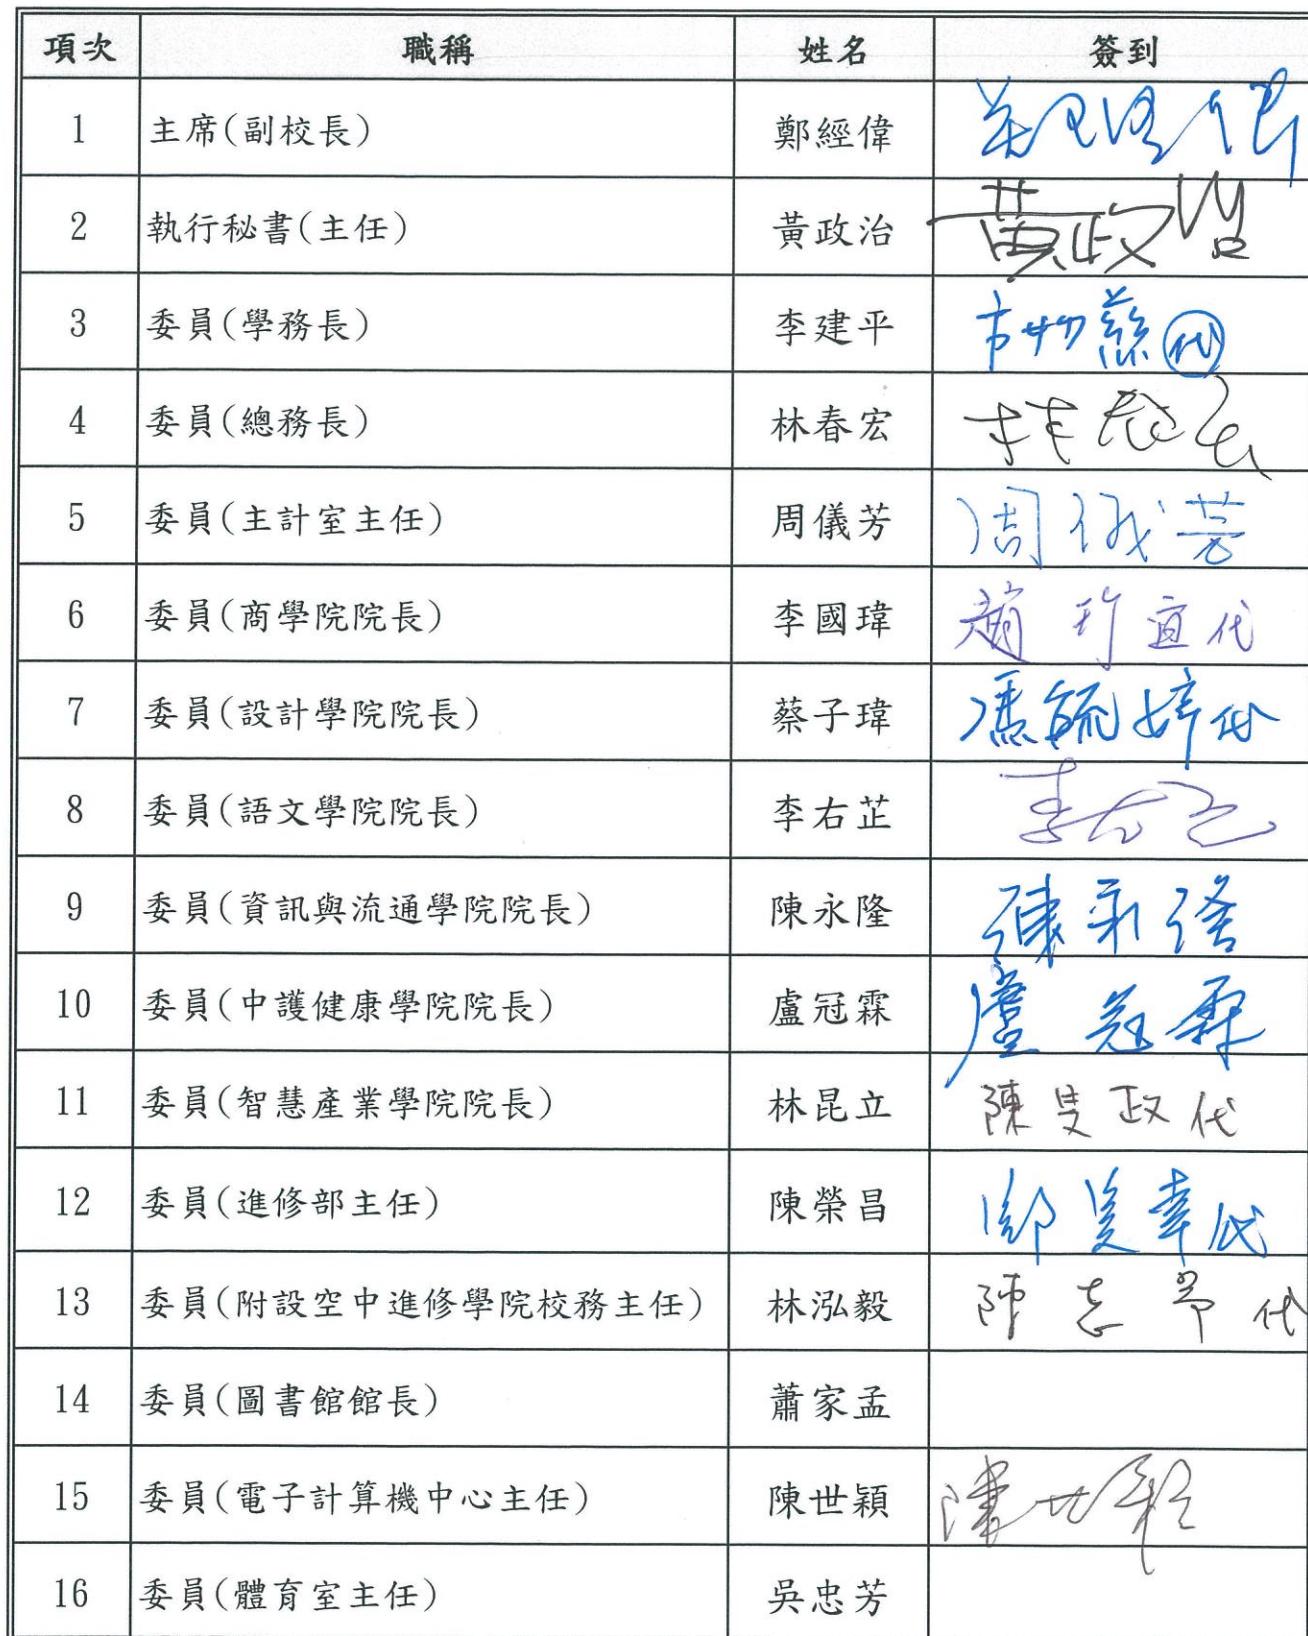 項次 職稱 姓名 簽到
1 主席(副校長) 鄭經偉 鄭經偉
2 執行秘書(主任) 黃政治 黃政治
3 委員(學務長) 李建平 慈代
4 委員(總務長) 林春宏 林春宏
5 委員(主計室主任) 周儀芳 周儀芳
6 委員(商學院院長) 李國瑋 趙 宜代
7 委員(設計學院院長) 蔡子瑋 馮毓婷代
8 委員(語文學院院長) 李右芷 李右芷
9 委員(資訊與流通學院院長) 陳永隆 陳永隆
10 委員(中護健康學院院長) 盧冠霖 盧冠霖
11 委員(智慧產業學院院長) 林昆立 陳旻政代
12 委員(進修部主任) 陳榮昌 代
13 委員(附設空中進修學院校務主任) 林泓毅 陳志 代
14 委員(圖書館館長) 蕭家孟
15 委員(電子計算機中心主任) 陳世穎 陳世穎
16 委員(體育室主任) 吳忠芳